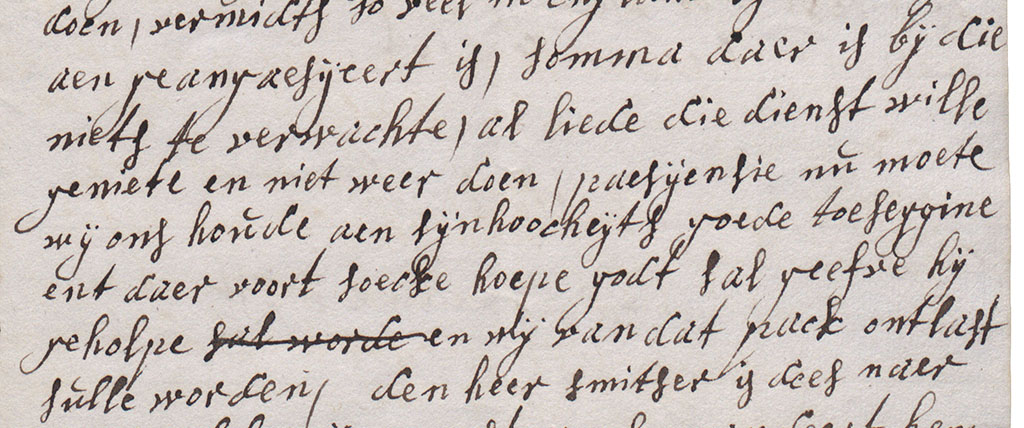 doen, vermidts so veel in
aen geangaesyeert is, somma daer is bij die
niets te verwachte, al liede die dienst wille
geniete en niet weer doen, paesyensie nu moete
wij ons houde aen sijnhoocheyts goede toeseggine
ent daer voort soecke hoepe godt sal geefve hij
geholpe sal worde en wij van dat pack ontlast
sulle worden, den heer smitser is dees naer